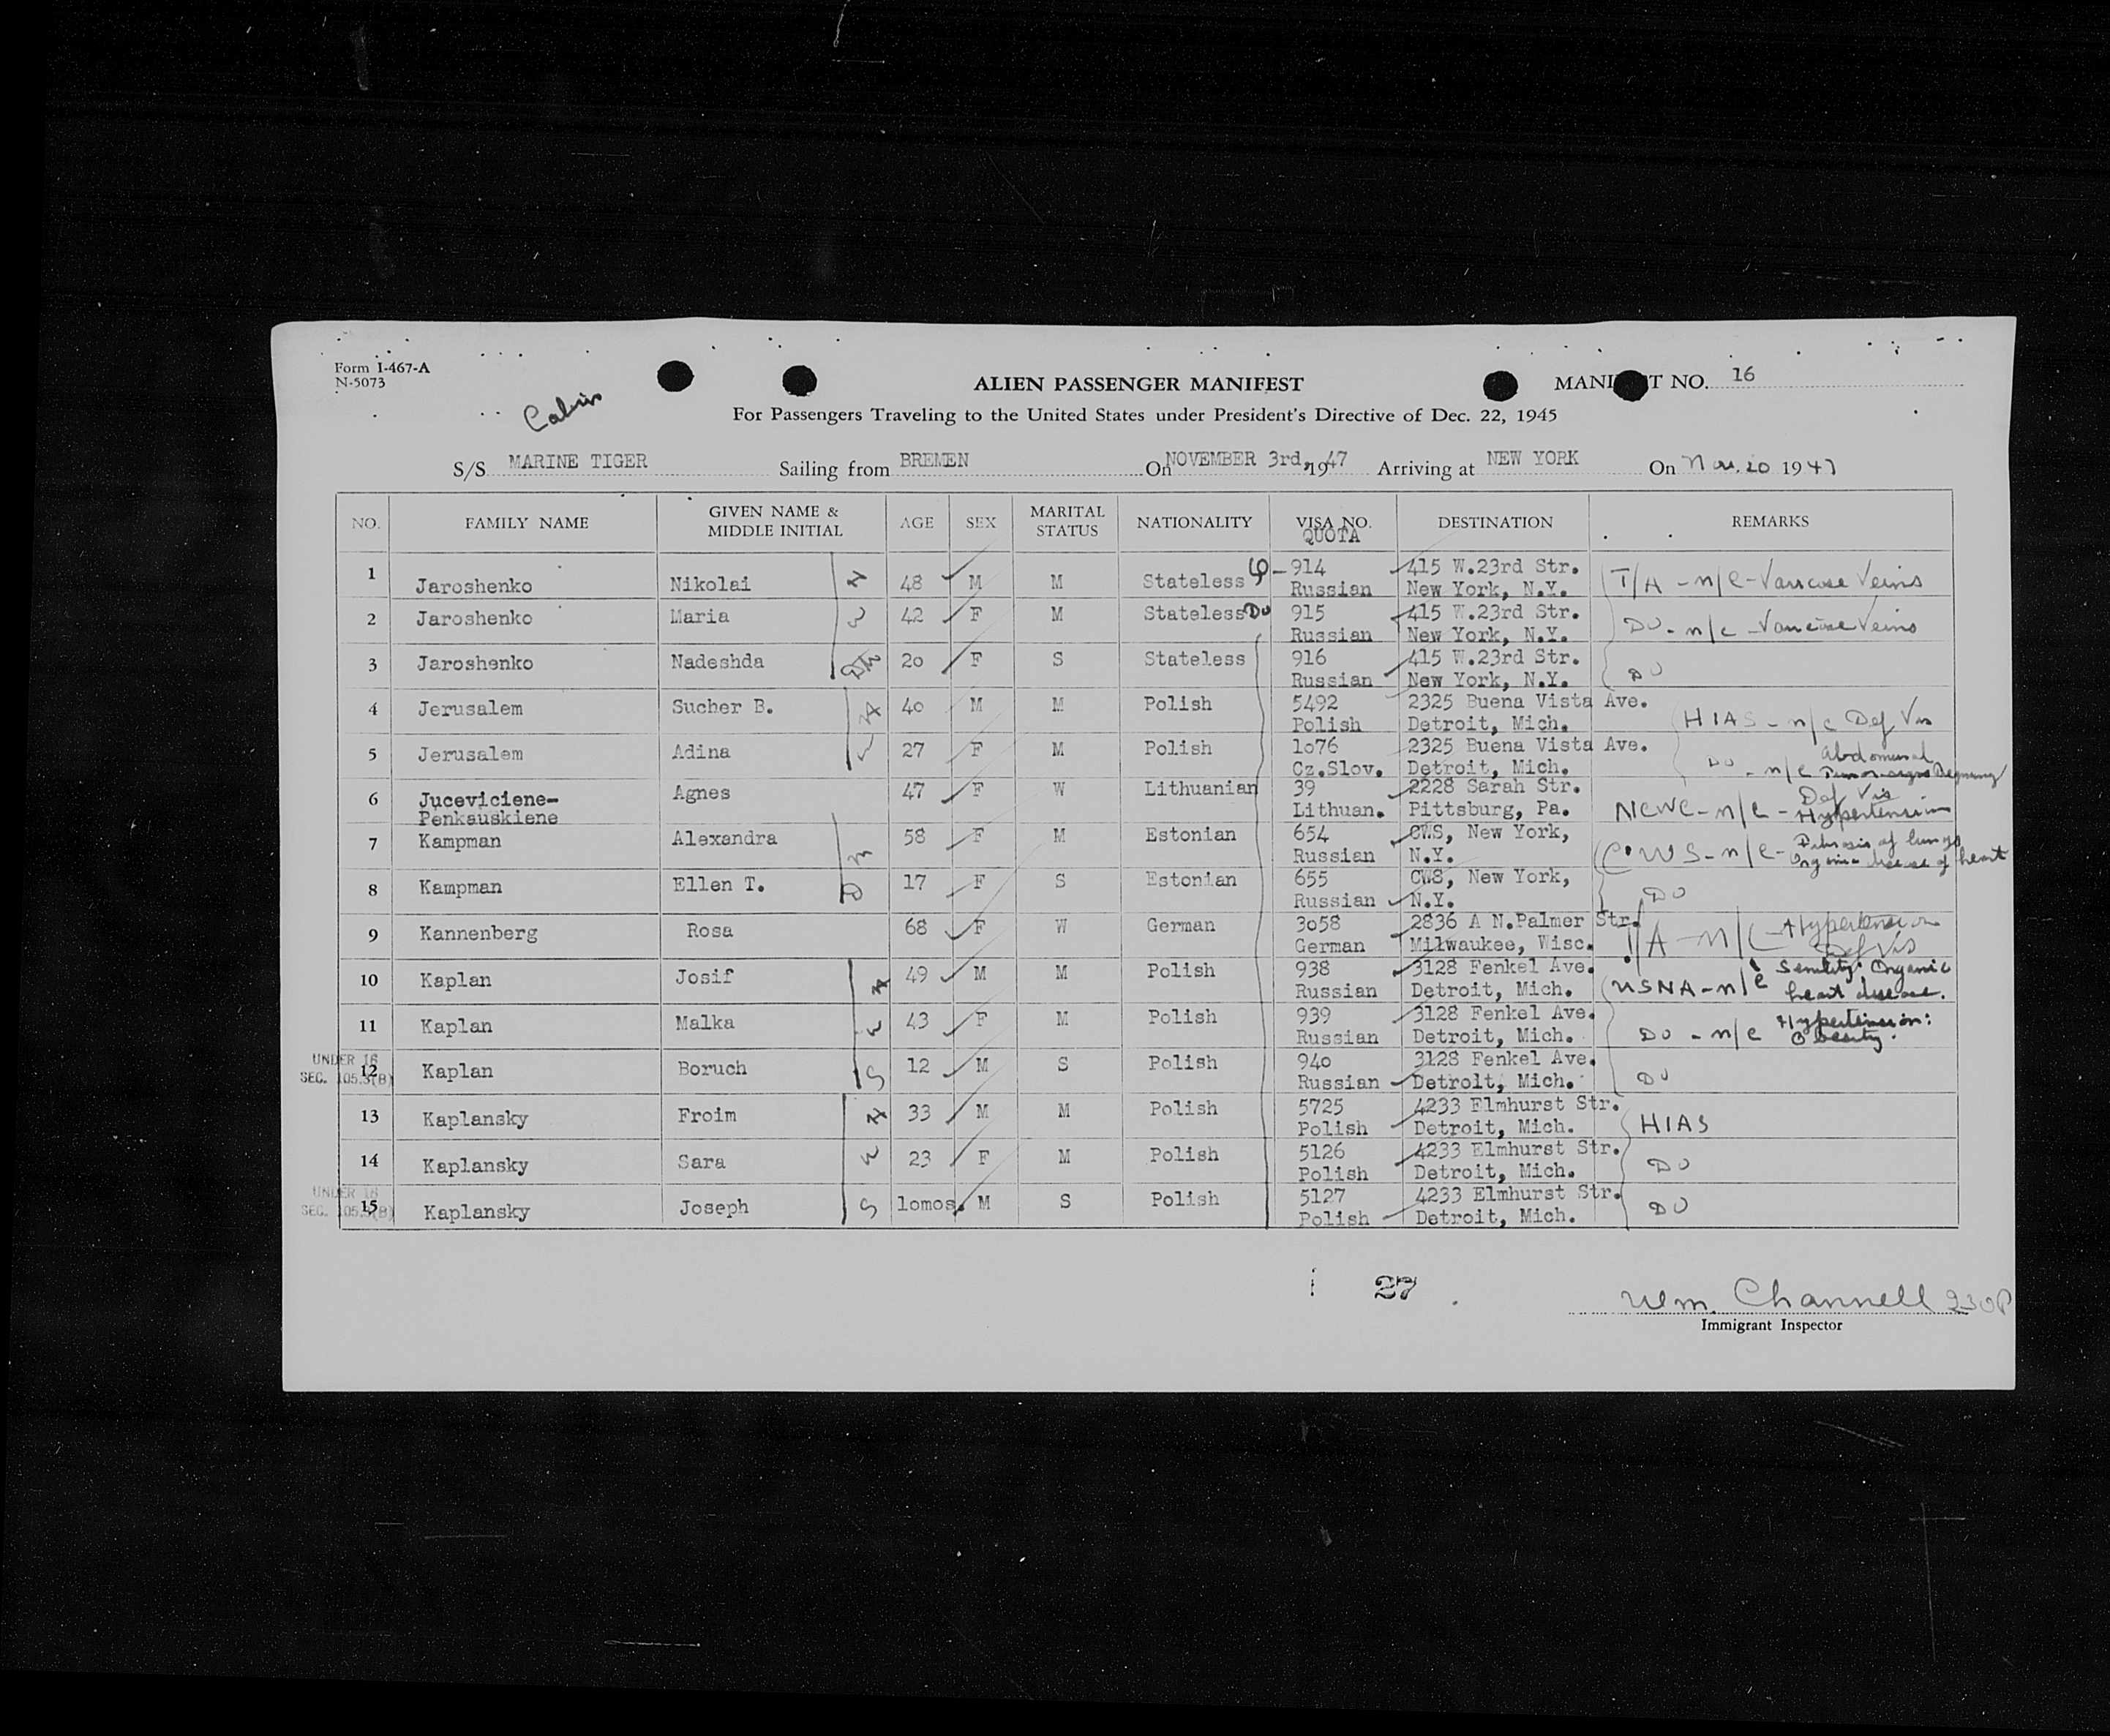 Form I-467-A
N-5073
Cabin
ALIEN PASSENGER MANIFEST
MANI T NO. 16
For Passengers Traveling to the United States under President's Directive of Dec. 22, 1945
S/S MARINE TIGER Sailing from BREMEN On NOVEMBER 3rd, 1947 Arriving at NEW YORK On Nov. 20 1947
NO. FAMILY NAME GIVEN NAME & MIDDLE INITIAL AGE SEX MARITAL STATUS NATIONALITY VISA NO. QUOTA DESTINATION REMARKS
1 Jaroshenko Nikolai 48 M M Stateless 914 415 W.23rd Str. T/A - n/c - Varicose Veins
Russian New York, N.Y.
2 Jaroshenko Maria 42 F M Stateless Do 915 415 W.23rd Str. DO - n/c - Varicose Veins
Russian New York, N.Y.
3 Jaroshenko Nadeshda 20 F S Stateless 916 415 W.23rd Str. DO
Russian New York, N.Y.
4 Jerusalem Sucher B. 40 M M Polish 5492 2325 Buena Vista Ave. HIAS - n/c Def Vis
Polish Detroit, Mich.
5 Jerusalem Adina 27 F M Polish 1076 2325 Buena Vista Ave. DO - n/c Abdominal
Cz.Slov. Detroit, Mich.
6 Juceviciene- Agnes 47 F W Lithuanian 39 2228 Sarah Str. NCWC - n/c - Def Vis
Penkauskiene Lithuan. Pittsburg, Pa. Hypertension
7 Kampman Alexandra 58 F M Estonian 654 CWS, New York, CWS - n/c - Fibrosis of lungs
Russian N.Y. Organic disease of heart
8 Kampman Ellen T. 17 F S Estonian 655 CWS, New York, DO
Russian N.Y.
9 Kannenberg Rosa 68 F W German 3058 2836 A N.Palmer Str. T/A - n/c - Hypertension
German Milwaukee, Wisc. Def Vis
10 Kaplan Josif 49 M M Polish 938 3128 Fenkel Ave. USNA - n/c Senility: Organic
Russian Detroit, Mich. heart disease.
11 Kaplan Malka 43 F M Polish 939 3128 Fenkel Ave. DO - n/c Hypertension:
Russian Detroit, Mich. Obesity.
UNDER 16
SEC. 105.3(B)
12 Kaplan Boruch 12 M S Polish 940 3128 Fenkel Ave. DO
Russian Detrolt, Mich.
13 Kaplansky Froim 33 M M Polish 5725 4233 Elmhurst Str. HIAS
Polish Detroit, Mich.
14 Kaplansky Sara 23 F M Polish 5126 4233 Elmhurst Str. DO
Polish Detroit, Mich.
UNDER 16
SEC. 105.3(B)
15 Kaplansky Joseph 10mos. M S Polish 5127 4233 Elmhurst Str. DO
Polish Detroit, Mich.
27
Wm. Channell 230P
Immigrant Inspector